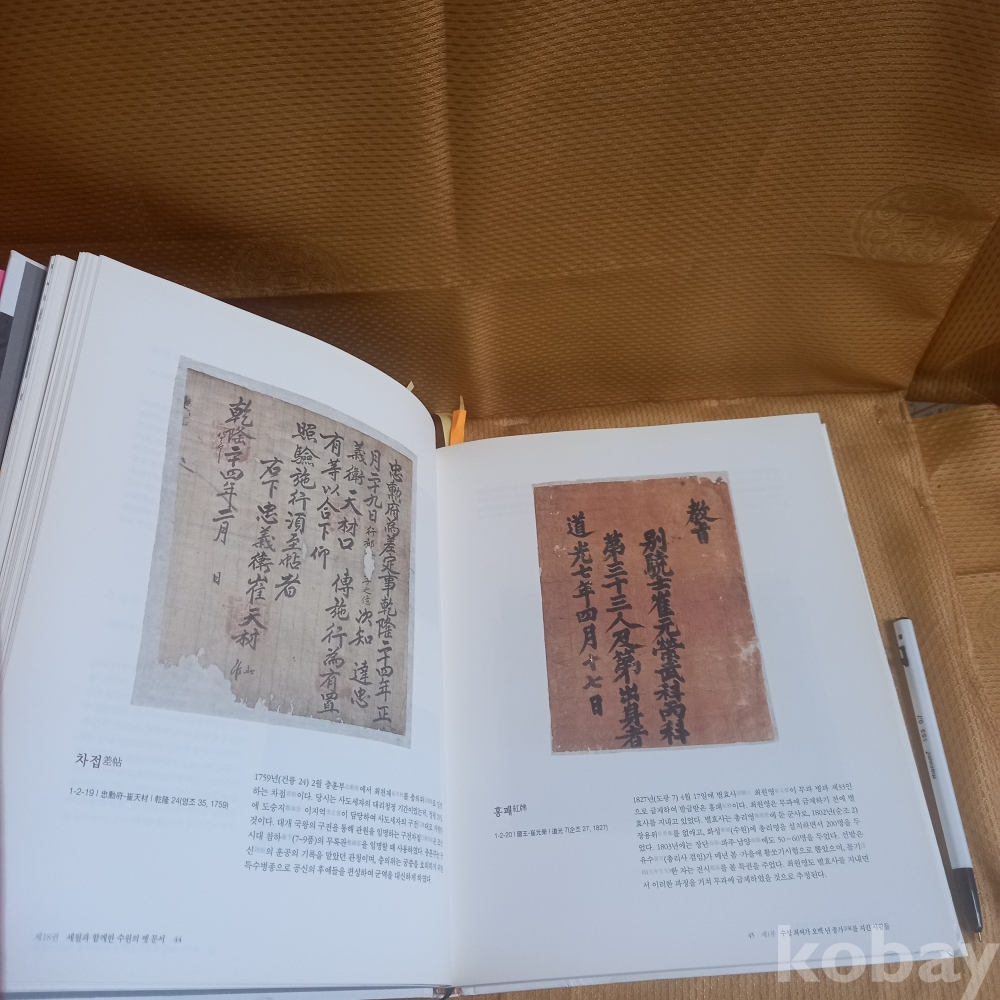 忠勳府爲差定事乾隆二十四年正
月二十九日行都
次知 達忠
義衛 天材
傳施行爲有置
有等以合下仰
照驗施行須至帖者
右下忠義衛崔天材
乾隆二十四年二月 日
차접差帖
1-2-19 | 忠勳府-崔天材 | 乾隆 24(영조 35, 1759)
1759년(건륭 24) 2월 충훈부에서 최천재를 충의
하는 차접이다. 당시는 사도세자의 대리청정 기간이었는데,
에 도승지 이지억이 담당하여 사도세자의 구전
것이다. 대개 국왕의 구전을 통해 관원을 임명하는 구전차첩
시대 참하(7~9품)의 무록관을 임명할 때 사용하였다. 충훈부
신의 훈공의 기록을 맡았던 관청이며, 충의위는 공신을
특수병종으로 공신의 후예들을 편성하여 군역을 대신하게 하였다.
제18권 세월과 함께한 수원의 옛 문서 44
敎旨
別驍士崔元榮武科丙科
第三十三人及第出身者
道光七年四月十七日
홍패紅牌
1-2-20 | 國王-崔元榮 | 道光 7(순조 27, 1827)
1827년(도광 7) 4월 17일에 별효사 최원영이 무과 병과 제33인
으로 급제하여 발급받은 홍패이다. 최원영은 무과에 급제하기 전에 별
효사를 지내고 있었다. 별효사는 총리영에 둔 군사로, 1802년(순조 2)
장용위를 없애고, 화성(수원)에 총리영을 설치하면서 200명을 두
었다. 1803년에는 장단·파주·남양에도 50~60명을 두었다. 선발은
유수(총리사 겸임)가 매년 봄·가을에 활쏘기시험으로 뽑았으며,
한 자는 전시를 볼 특권을 주었다. 최원영도 별효사를 지내면
서 이러한 과정을 거쳐 무과에 급제하였을 것으로 추정된다.
45 제1부 수성 최씨가 오백 년 종가를 지킨 사람들
kobay